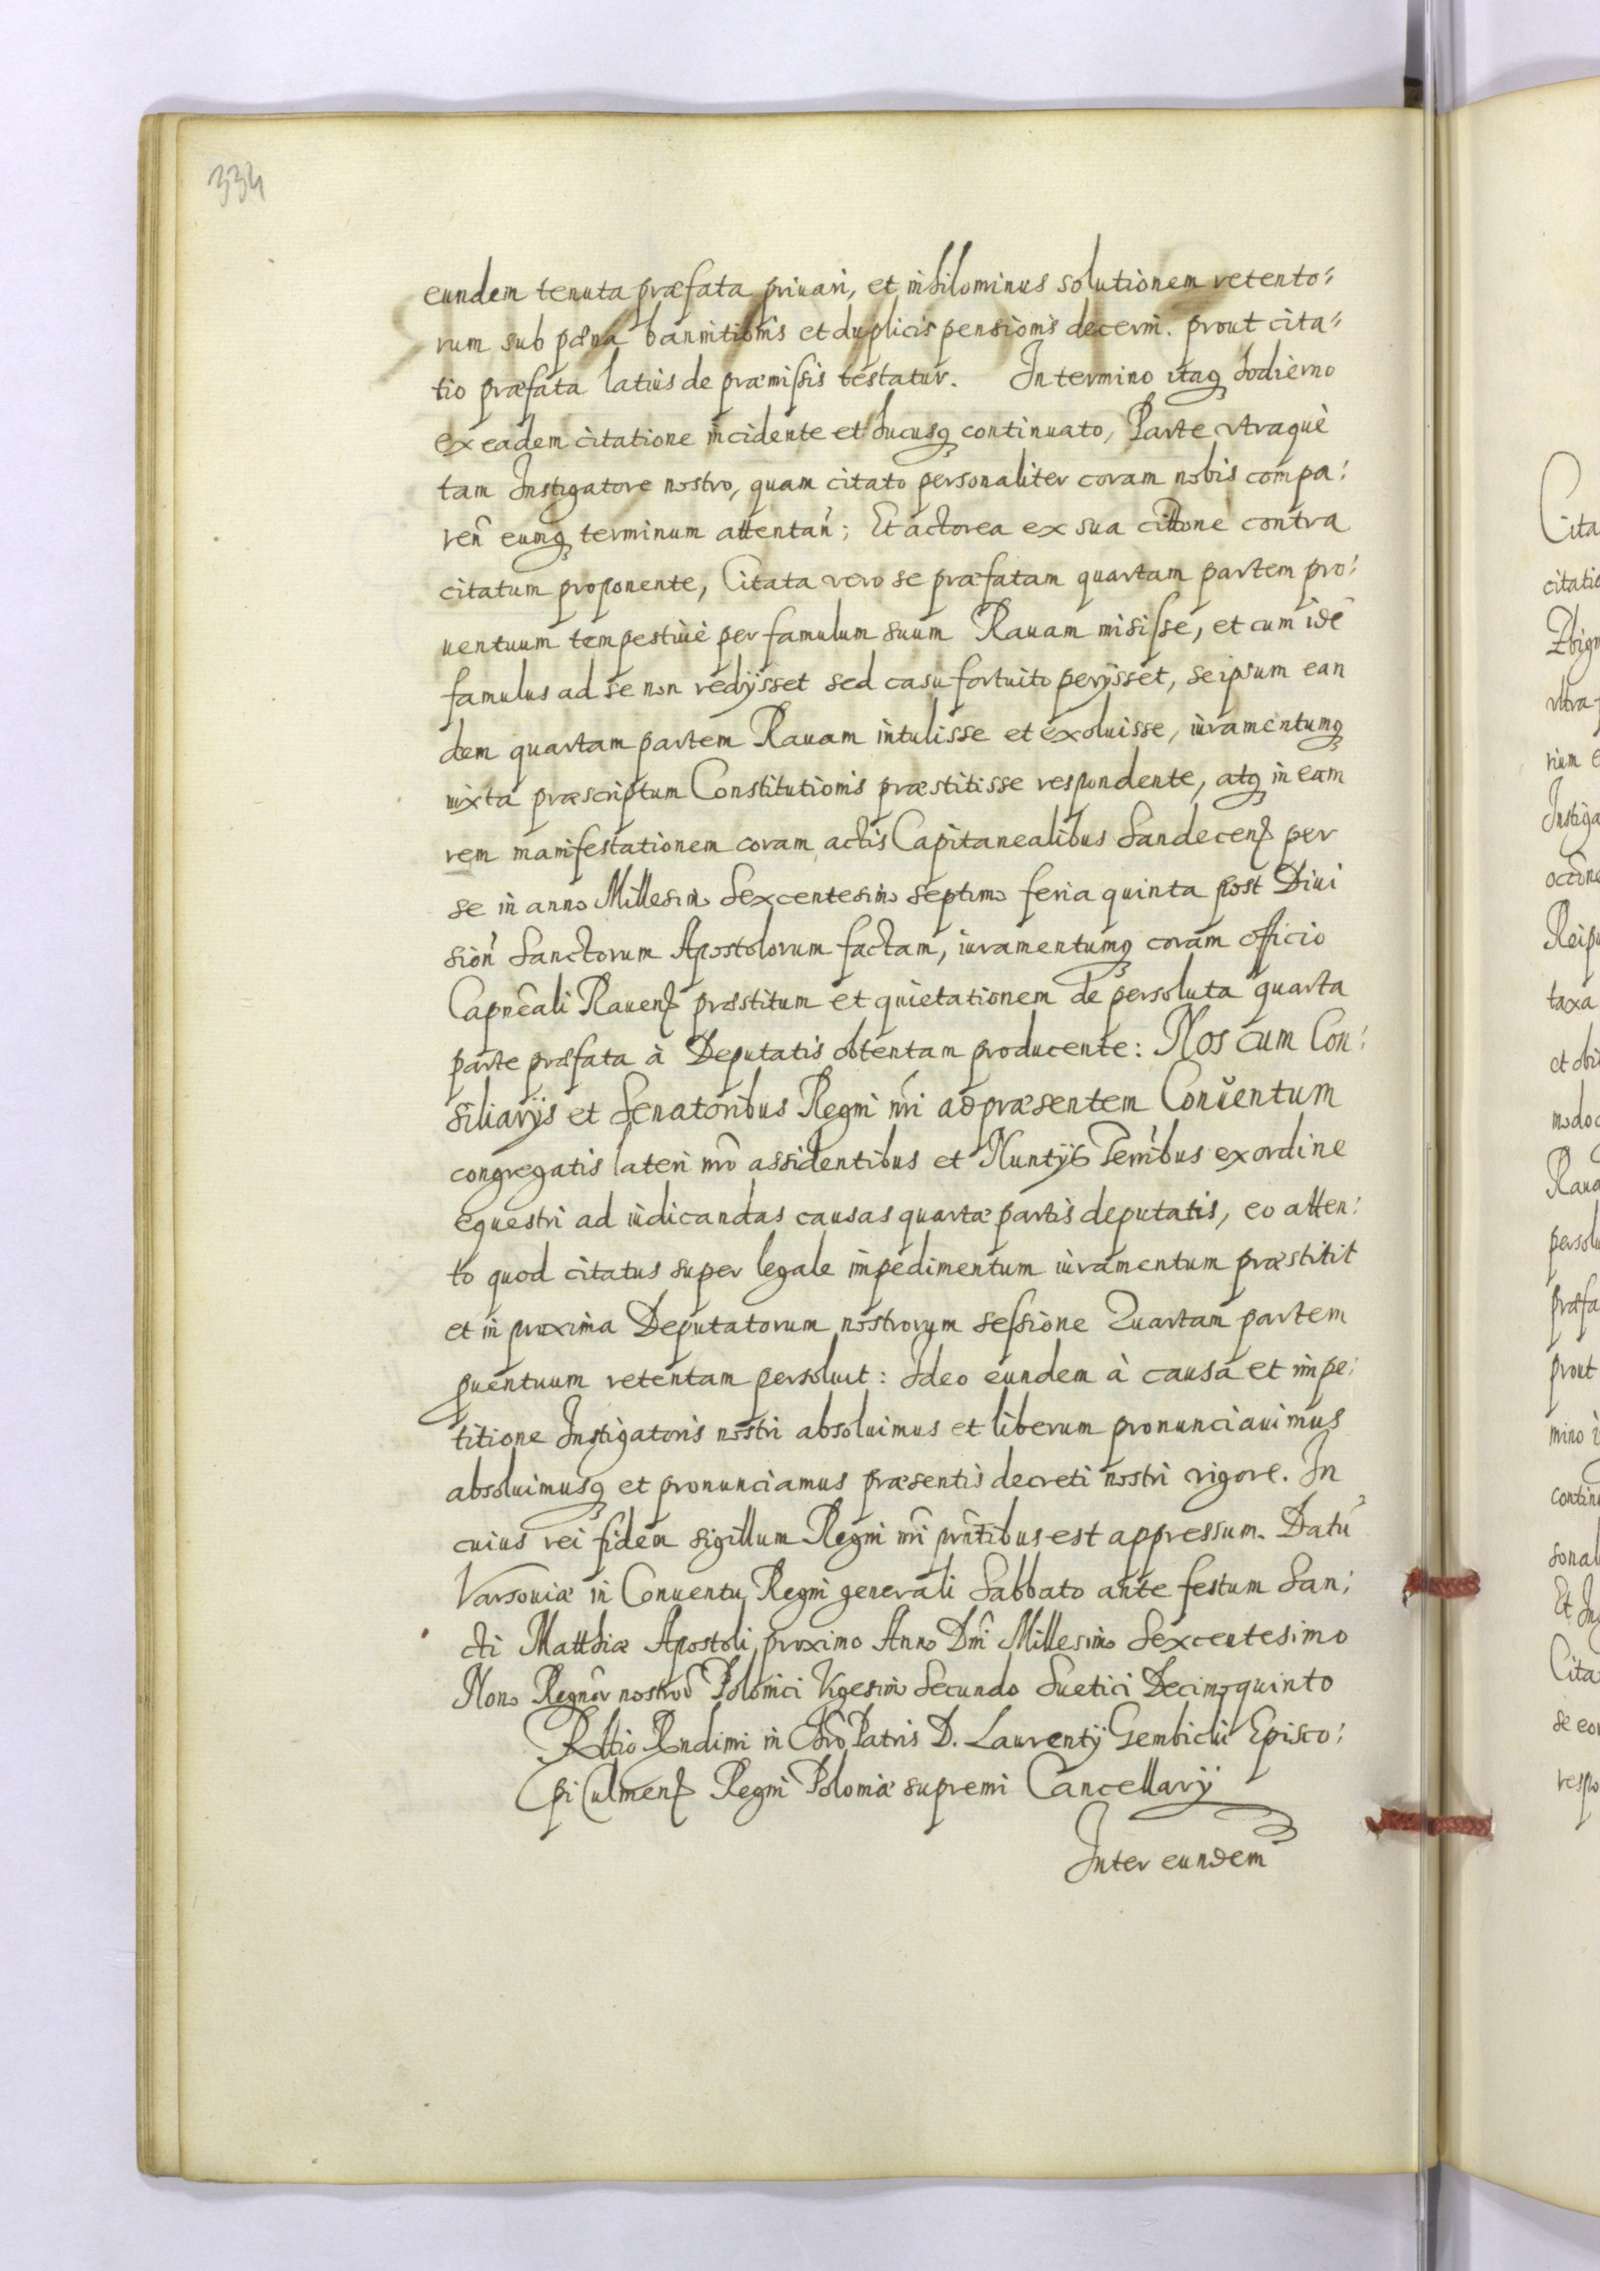 334
eundem tenuta præfata priuari, et nihilominus solutionem retento:
rum sub pœna bannitionis et duplicis pensionis decerni. prout cita:
tio præfata latius de præmissis testatur. In termino itaq hodierno
ex eadem citatione incidente et hucusq continuato, Parte vtraquè
tam Instigatore nostro, quam citato personaliter coram nobis compa:
reñ eumq terminum attentañ; Et actorea ex sua cittõne contra
citatum proponente, Citata vero se præfatam quartam partem pro:
uentuum tempestiuè per famulum suum Rauam misisse, et cum idē
famulus ad se non redijsset sed casu fortuito perijsset, se ipsum ean
dem quartam partem Rauam intulisse et exoluisse, iuramentumq
iuxta præscriptum Constitutionis præstitisse respondente, atq in eam
rem manifestationem coram actis Capitanealibus Sandecenƺ per
se in anno Millesimo Sexcentesimo septimo feria quinta post Diui
sioñ Sanctorum Apostolorum factam, iuramentumq coram officio
Capnēali Rauenƺ præstitum et quietationem de persoluta quarta
parte præfata à Deputatis obtentam producente: Nos cum Con:
siliarijs et Senatoribus Regni nr̃i ad præsentem Conuentum
congregatis lateri nr̃o assidentibus et Nuntijs Terr̃ibus ex ordine
equestri ad iudicandas causas quartæ partis deputatis, eo atten:
to quod citatus super legale impedimentum iuramentum præstitit
et in proxima Deputatorum nostrorum sessione Quartam partem
ꝓuentuum retentam persoluit: Ideo eundem à causa et impe:
titione Instigatoris nostri absoluimus et liberum pronunciauimus
absoluimusq et pronunciamus præsentis decreti nostri vigore. In
cuius rei fidem sigillum Regni nr̃i pñtibus est appressum. Datū
Varsouiæ in Conuentu Regni generali Sabbato ante festum San:
cti Matthiæ Apostoli proximo Anno Dñi Millesimo Sexcentesimo
Nono Regnõr nostrõr Polonici Vigesimo Secundo Suetici Decimoquinto
Rltio Rndimi in Chr̃o Patris D. Laurentij Gembicki Episco:
pi Culmenƺ Regni Poloniæ supremi Cancellarij
Inter eundem
Cita
citatio
Zbign
vltra
rium e
Instiga
occõne
Reipu
taxa
et obi
modo
Raua
persolu
præfa
prout
mino i
contin
sonal
Et In
Cita
se eo
respo